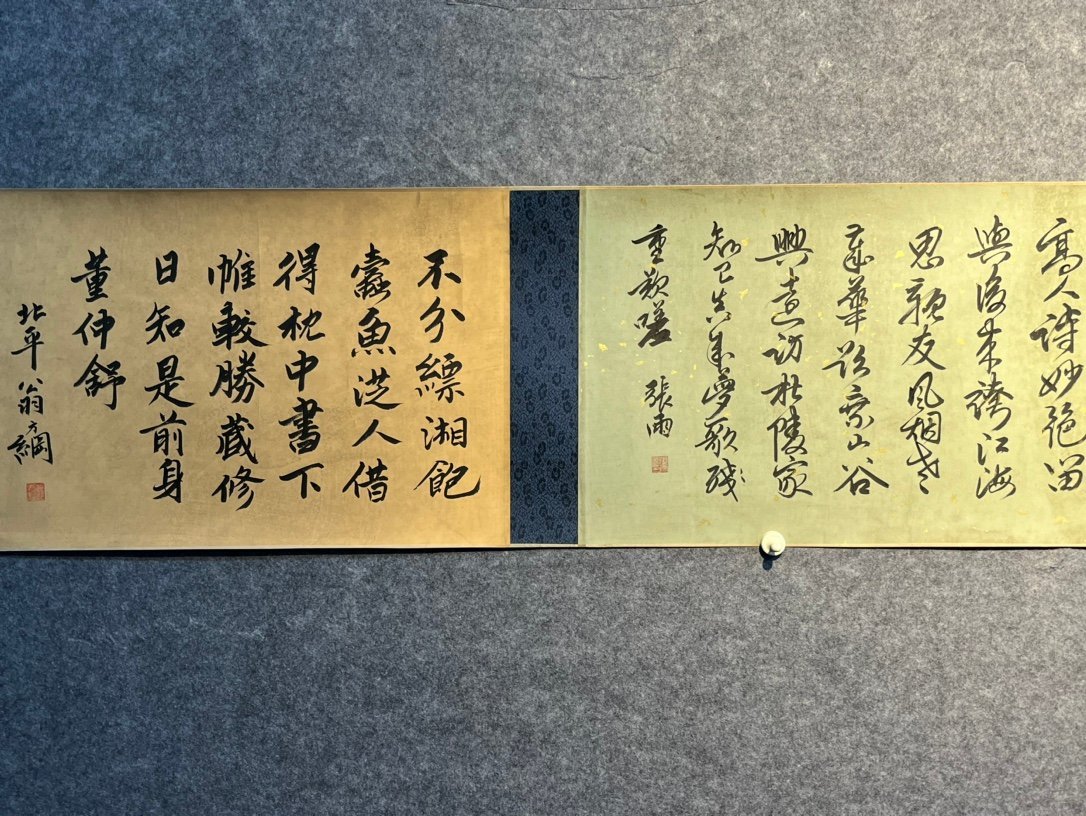 高人詩妙絕留
與後來誇江海
思親友風烟老
歲華山谷
興遠訪杜陵家
知己真成夢歌殘
重歎嗟
張雨
不分縹湘飽
蠹魚從人借
得枕中書下
帷較勝藏修
日知是前身
董仲舒
北平翁方綱